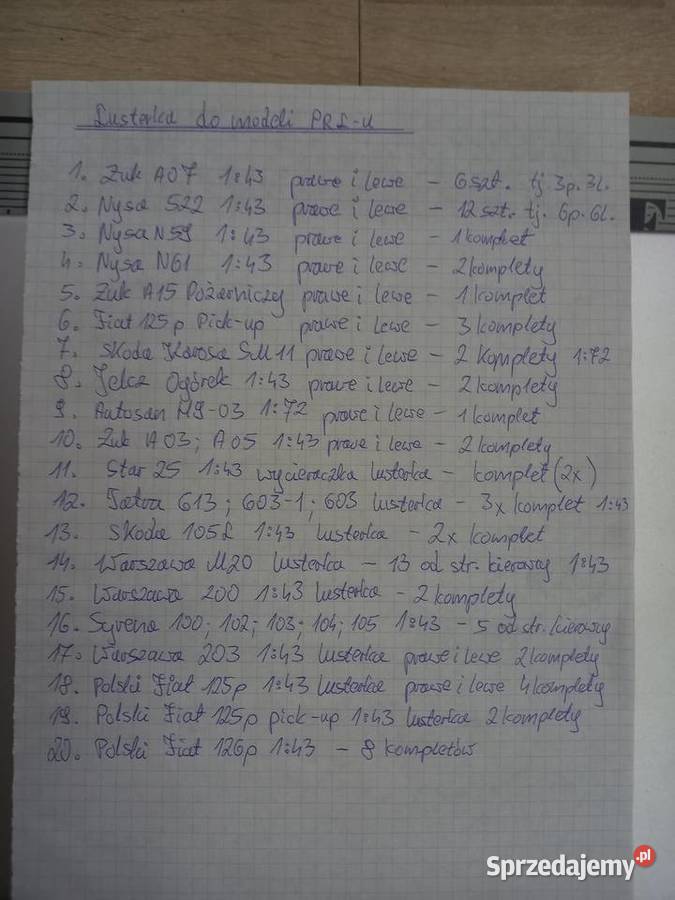 Lusterka do modeli PRL-u
1. Żuk A07 1:43 prawe i lewe - 6 szt. tj. 3p. 3l.
2. Nysa 522 1:43 prawe i lewe - 12 szt. tj. 6p. 6l.
3. Nysa N59 1:43 prawe i lewe - 1 komplet
4. Nysa N61 1:43 prawe i lewe - 2 komplety
5. Żuk A15 Pożarniczy prawe i lewe - 1 komplet
6. Fiat 125p Pick-up prawe i lewe - 3 komplety
7. Skoda Karosa SM 11 prawe i lewe - 2 komplety 1:72
8. Jelcz Ogórek 1:43 prawe i lewe - 2 komplety
9. Autosan H9-03 1:72 prawe i lewe - 1 komplet
10. Żuk A03; A05 1:43 prawe i lewe - 2 komplety
11. Star 25 1:43 wycieraczka lusterka - komplet (2x)
12. Tatra 613; 603-1; 603 lusterka - 3x komplet 1:43
13. Skoda 105L 1:43 lusterka - 2x komplet
14. Warszawa M20 lusterka - 13 od str. kierowcy 1:43
15. Warszawa 200 1:43 lusterka - 2 komplety
16. Syrena 100; 102; 103; 104; 105 1:43 - 5 od str. kierowcy
17. Warszawa 203 1:43 lusterka prawe i lewe 2 komplety
18. Polski Fiat 125p 1:43 lusterka prawe i lewe 4 komplety
19. Polski Fiat 125p pick-up 1:43 lusterka 2 komplety
20. Polski Fiat 126p 1:43 - 8 kompletów
Sprzedajemy.pl